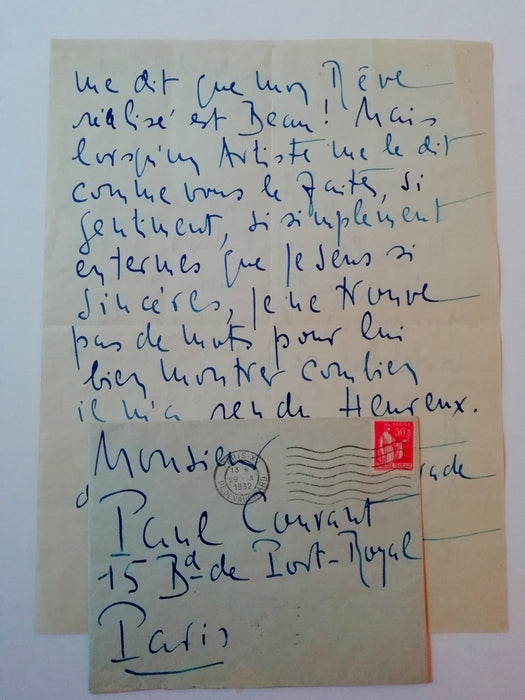 me dit que mon Rêve
réalisé est Beau! Mais
lorsqu'un Artiste me le dit
comme vous le faites, si
gentiment, si simplement
en termes que je sens si
sincères, je ne trouve
pas de mots pour lui
bien montrer combien
il m'a rendu Heureux.
Monsieur
Paul Couvant
15 Bd de Port-Royal
Paris
1932
50c